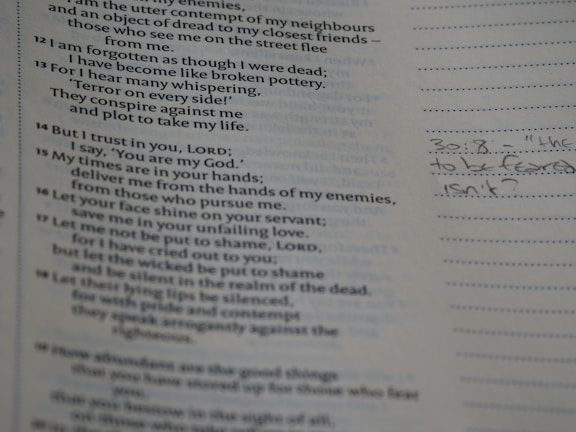 my enemies,
I am the utter contempt of my neighbours
and an object of dread to my closest friends –
those who see me on the street flee
from me.
12 I am forgotten as though I were dead;
I have become like broken pottery.
13 For I hear many whispering,
‘Terror on every side!’
They conspire against me
and plot to take my life.
14 But I trust in you, LORD;
I say, ‘You are my God.’
15 My times are in your hands;
deliver me from the hands of my enemies,
from those who pursue me.
16 Let your face shine on your servant;
save me in your unfailing love.
17 Let me not be put to shame, LORD,
for I have cried out to you;
but let the wicked be put to shame
and be silent in the realm of the dead.
18 Let their lying lips be silenced,
for with pride and contempt
they speak arrogantly against the
righteous.
19 How abundant are the good things
that you have stored up for those who fear
you,
that you bestow in the sight of all,
on those who take refuge
30:8 - "the
to be feared
isn't?